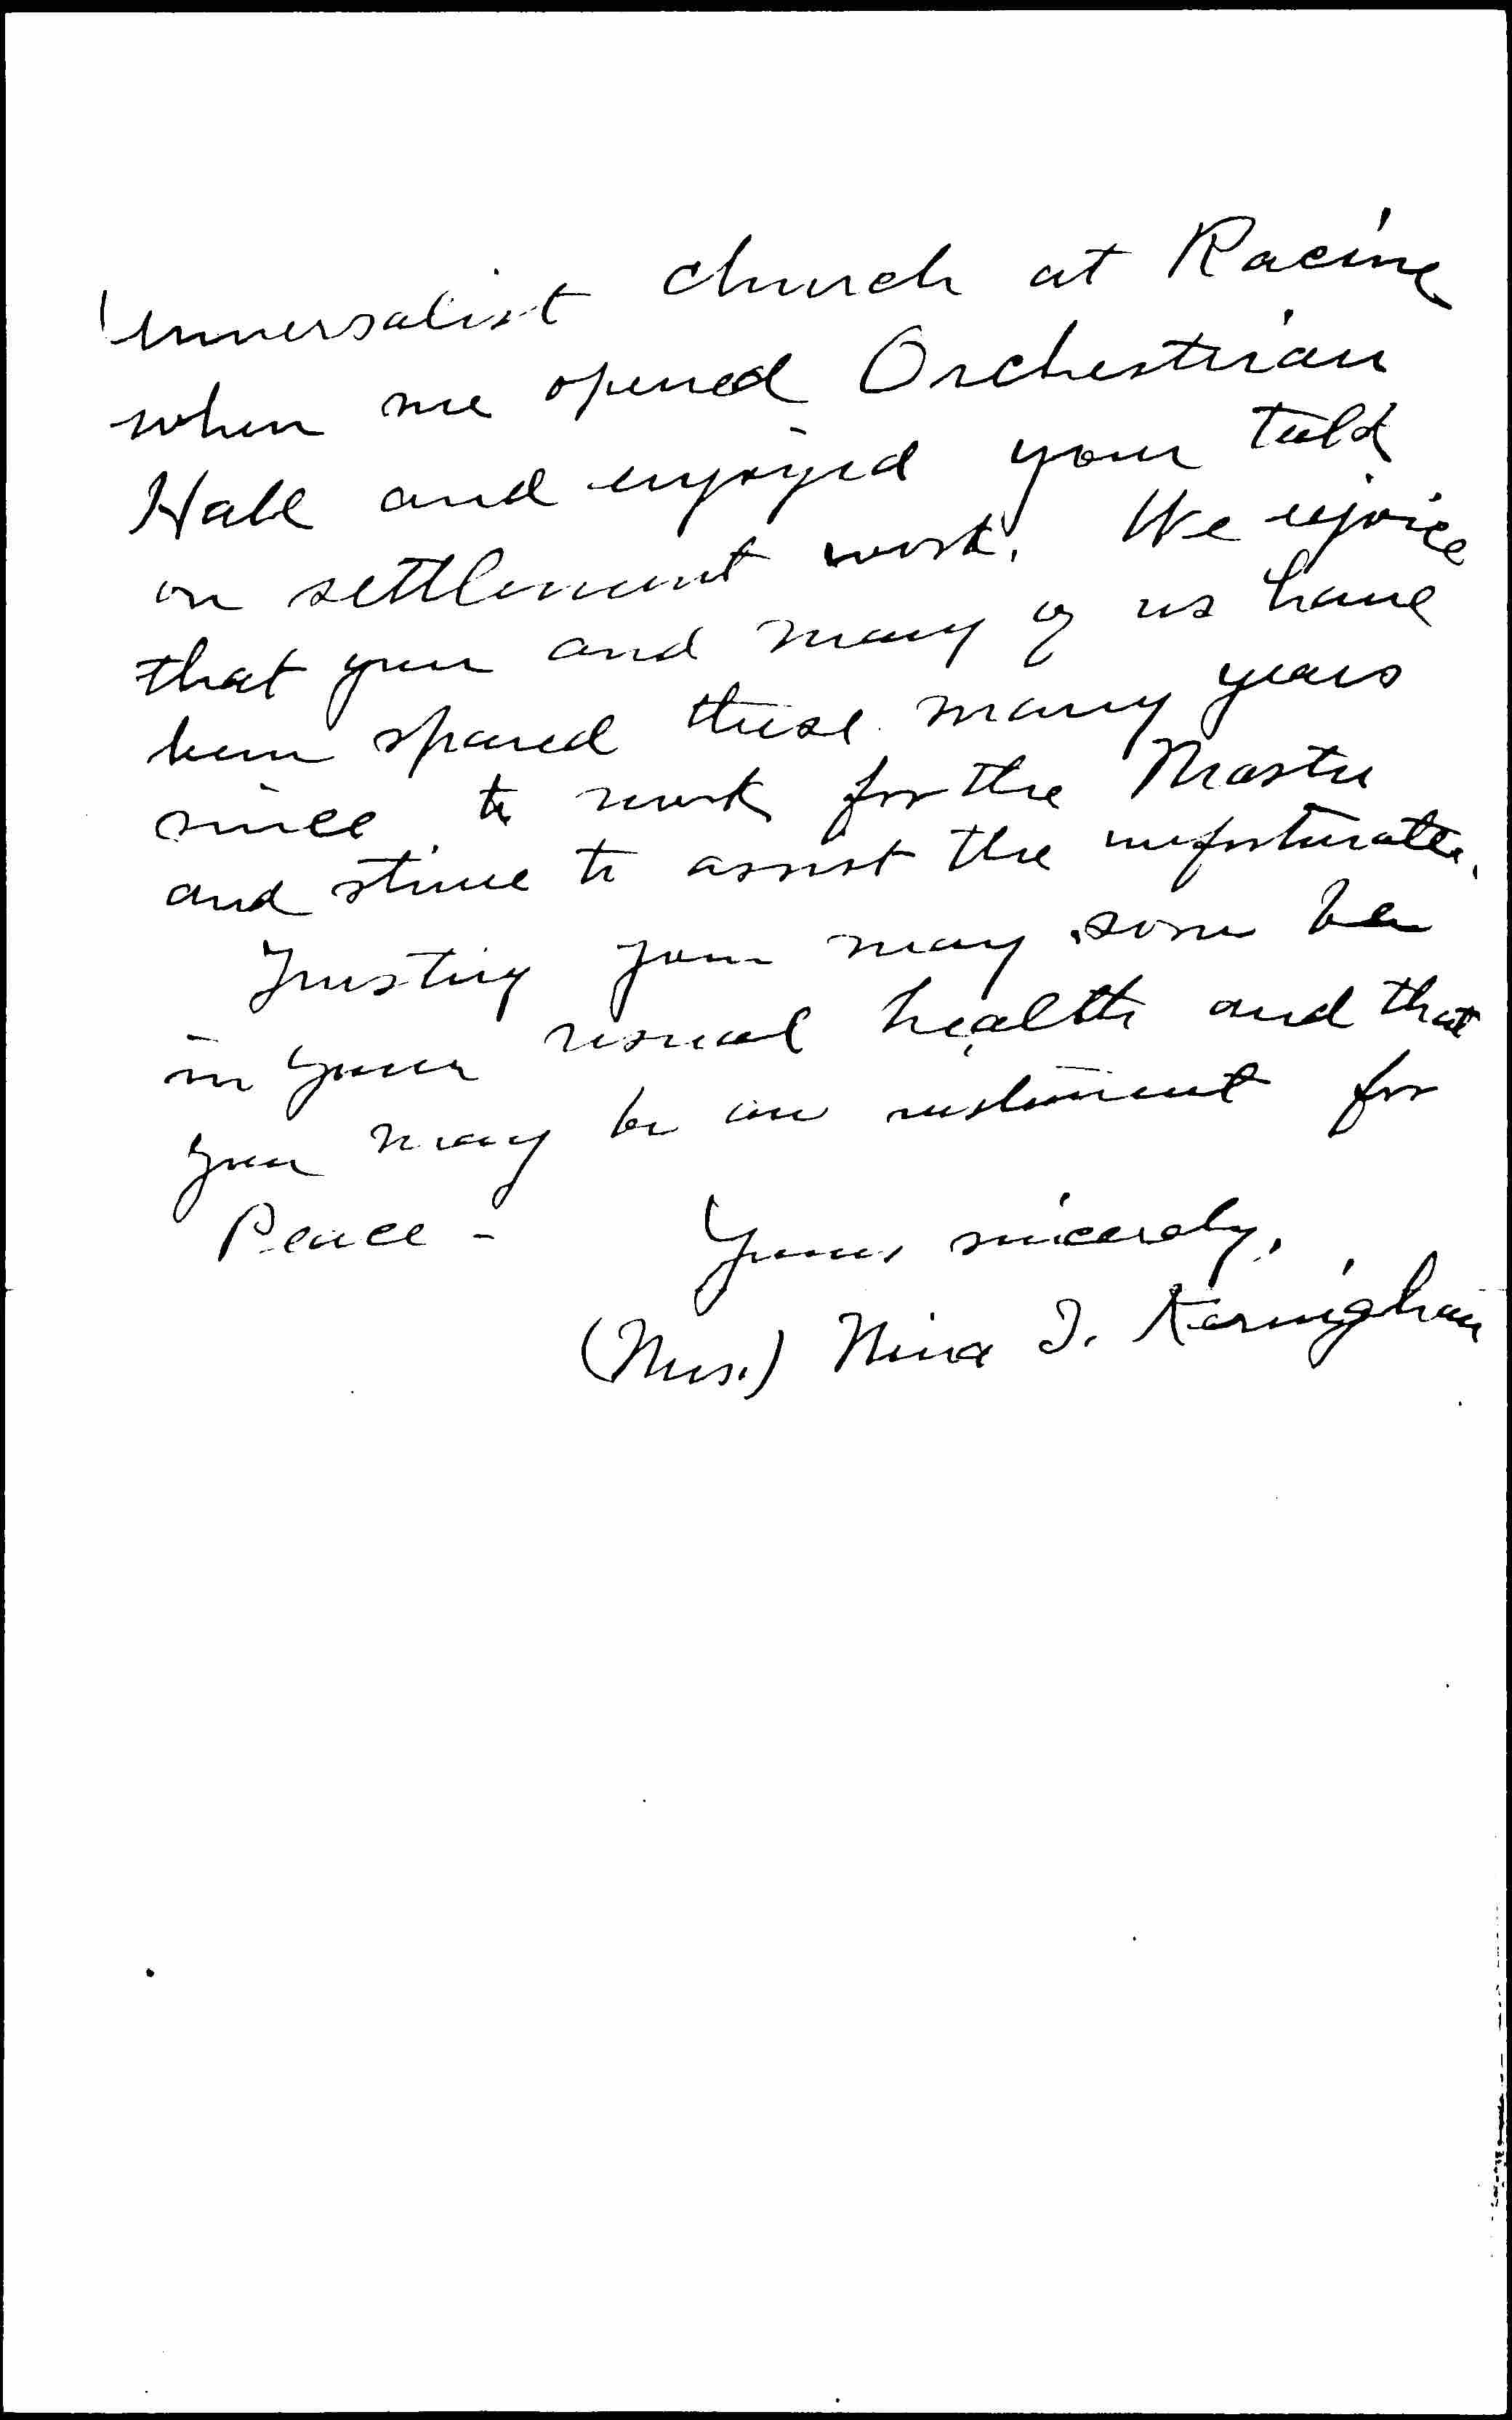 Universalist church at Racine
when we opened Orchestrian
Hall and enjoyed your talk
on settlement work. We rejoice
that you and many of us have
been spared these many years
since to work for the Master
and strive to assist the unfortunate.
Trusting you may soon be
in your usual health and that
you may be an instrument for
Peace -
Yours sincerely,
(Mrs.) Nina I. Kernighan